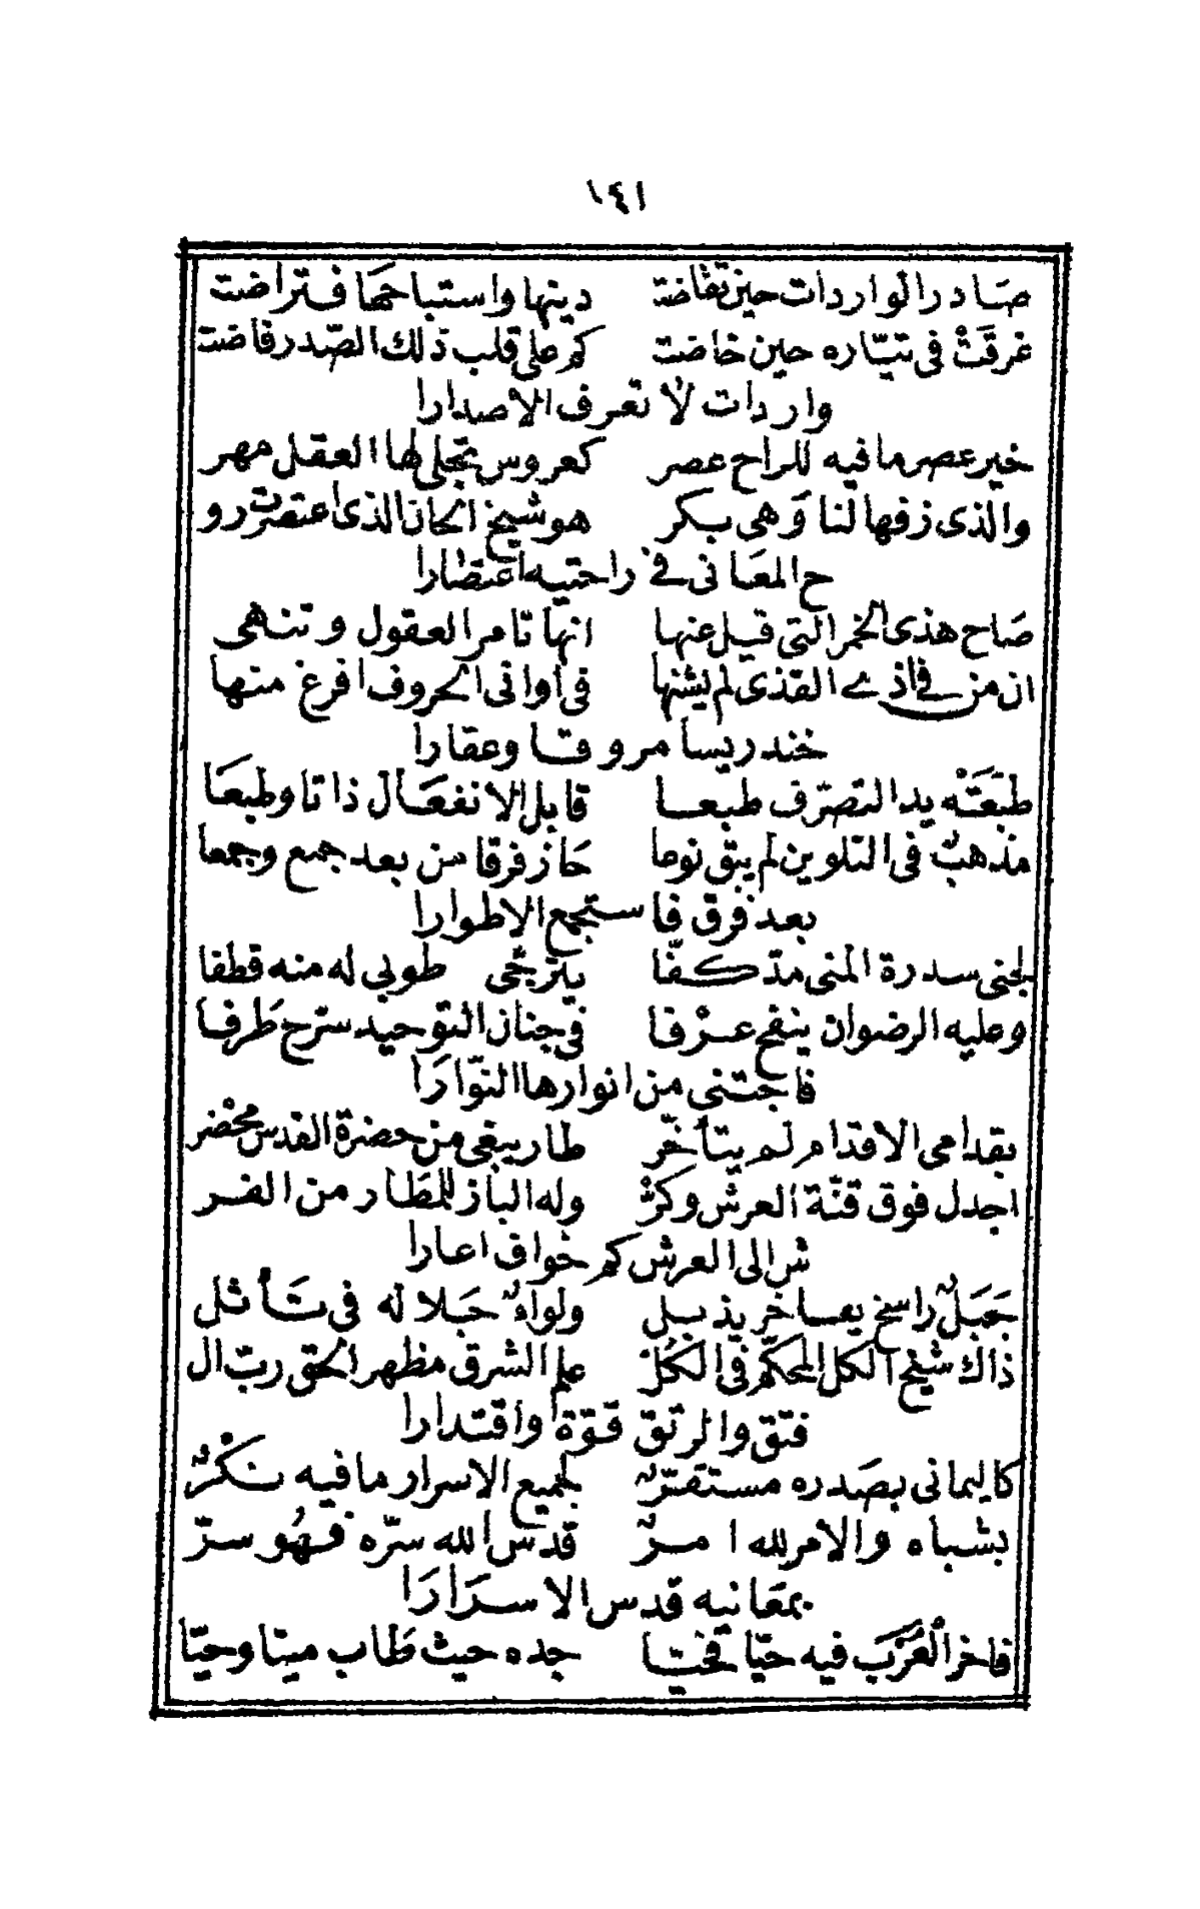 ١٤١
صَادر الواردات حين تقاضت دينها واستباحها فتراضت
غرقَتْ في تيّاره حين خاضت كم على قلب ذلك الصّدر فاضت
واردات لا تعرف الاصدارا
خير عصر ما فيه للراح عصر كعروس تجلى لها العقل مهر
والذى زفها لنا وَهى بكر هو شيخ الحان الذى اعتصرت رو
ح المعَانى فى راحتيه اعتصارا
صَاح هذى الخمر التى قيل عنها انها تامر العقول وتنهى
ان من فى اذى القذى لم يشنها فى اوانى الحروف افرغ منها
خندريسا مروقا وعقارا
طبَعَتْه يد التصرّف طبعا قابل الانفعَال ذاتا وطبعَا
مذهبٌ فى التلوين لم يبق نوعا حَاز فرقا من بعد جمع وجمعا
بعد فرق فاستجمع الاطوارا
لجنى سدرة المنى مدّ كفّا يترجّى طوبى له منه قطفا
وعليه الرضوان ينفح عرْفا فى جنان التوحيد سترح طَرفا
فاجتنى من انوارها النوّارَا
بقدامى الاقدام لم يتأخّر طار يبغى من حضرة القدس محْضر
اجدل فوق قنّة العرش وكرْ وله الباز للمطَار من الفر
ش الى العرش كم خوافٍ اعارا
جَبَلٌ راسخ يفاخر يذبل ولواءٌ حَلا له فى تَأثل
ذاك شيخ الكل المحكّم فى الكُلْ علم الشرق مظهر الحق ربّ ال
فتق والرتق قوّة واقتدارا
كاليمانى بصَدره مستقرٌّ لجميع الاسرار ما فيه نكْرٌ
بشباه والامر لله امرٌ قدس الله سرّه فهُو سرّ
بمعَانيه قدس الاسرَارَا
فاخر الغَرْبَ فيه حيّا فحيّا جده حيث طَاب ميتا وحيّا